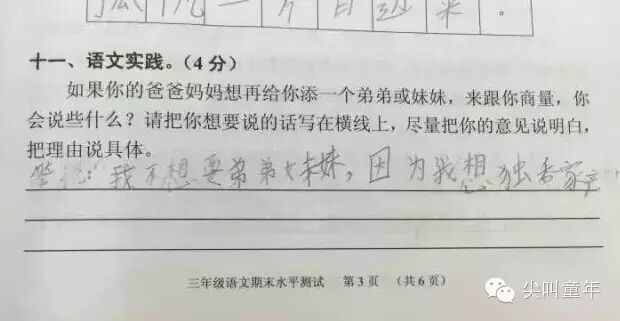 一个自迎来。
十一、语文实践。(4分)
如果你的爸爸妈妈想再给你添一个弟弟或妹妹，来跟你商量，你
会说些什么？请把你想要说的话写在横线上，尽量把你的意见说明白，
把理由说具体。
答：我不想要弟弟妹妹，因为我想独吞家产
三年级语文期末水平测试 第3页 (共6页)
尖叫童年